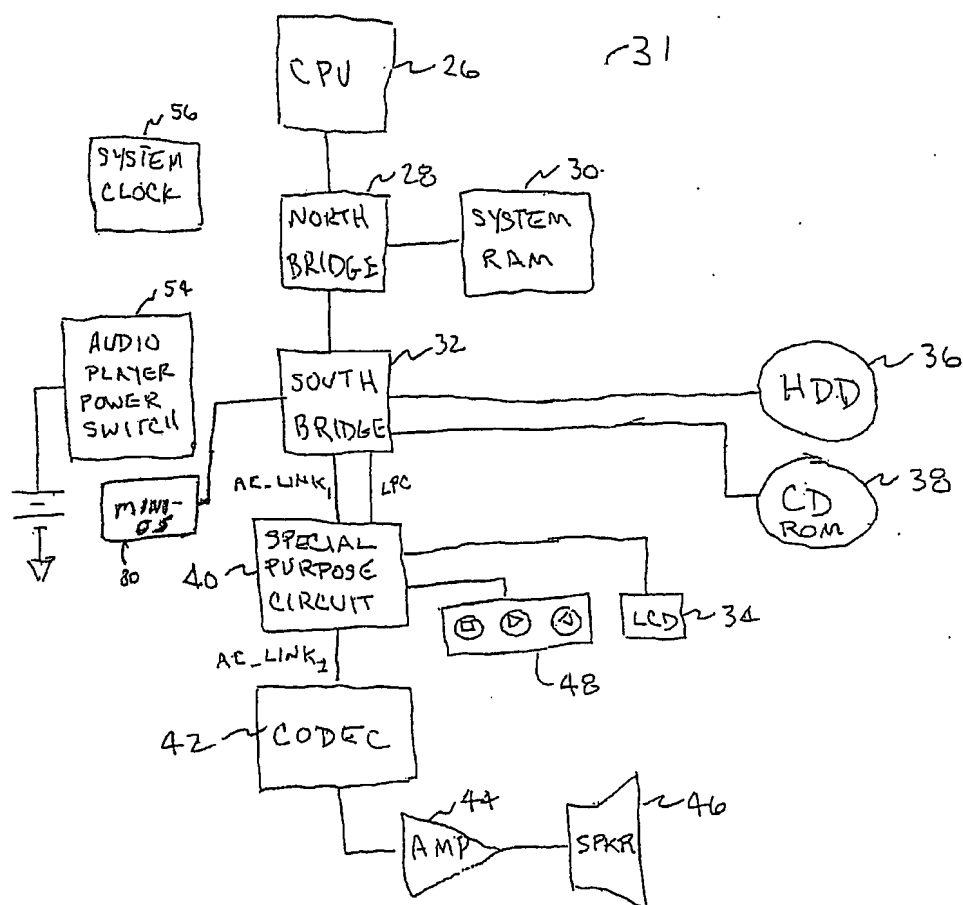 31
CPU
26
56
SYSTEM
CLOCK
28
NORTH
BRIDGE
30
SYSTEM
RAM
54
AUDIO
PLAYER
POWER
SWITCH
32
SOUTH
BRIDGE
HDD
36
CD
ROM
38
MINI-
OS
80
AC_LINK1
LPC
40
SPECIAL
PURPOSE
CIRCUIT
LCD
34
48
AC_LINK2
42
CODEC
44
AMP
46
SPKR